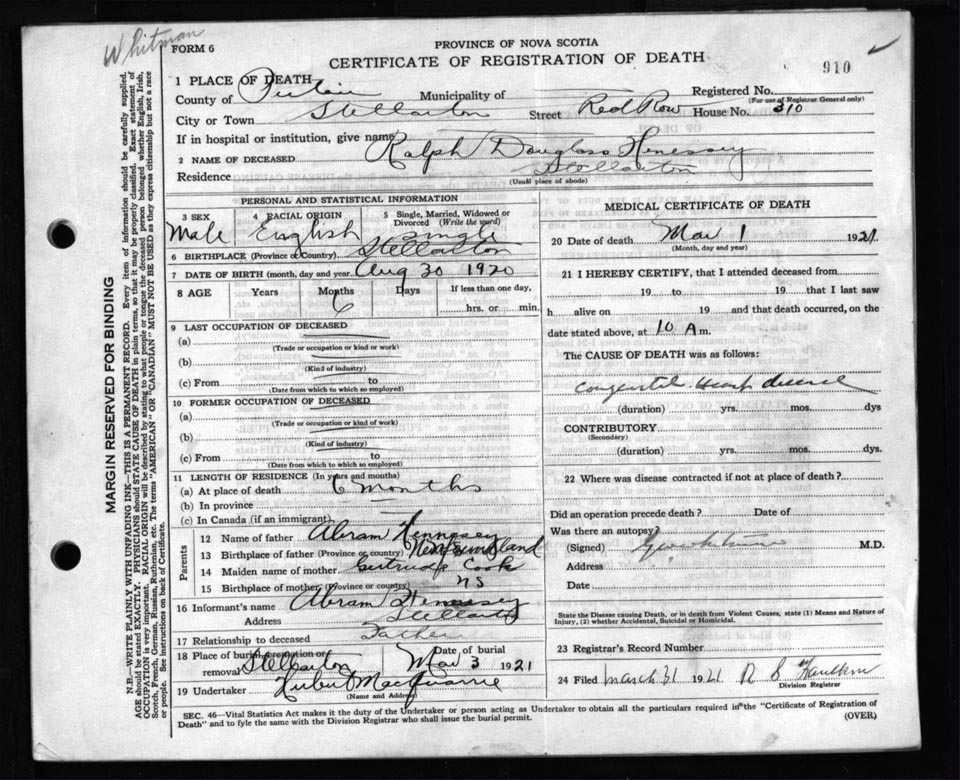 Whitman
FORM 6
PROVINCE OF NOVA SCOTIA
CERTIFICATE OF REGISTRATION OF DEATH
910
1 PLACE OF DEATH
County of Municipality of Registered No.
(For use of Registrar General only)
City or Town Stellarton Street Red Row House No. 310
If in hospital or institution, give name
2 NAME OF DECEASED Ralph Douglass Henessey
Residence Stellarton
(Usual place of abode)
PERSONAL AND STATISTICAL INFORMATION
3 SEX Male
4 RACIAL ORIGIN English
5 Single, Married, Widowed or Divorced (Write the word) single
6 BIRTHPLACE (Province or Country) Stellarton
7 DATE OF BIRTH (month, day and year) Aug 30 1920
8 AGE Years Months Days If less than one day,
6 hrs. or min.
9 LAST OCCUPATION OF DECEASED
(a)
(Trade or occupation or kind or work)
(b)
(Kind of industry)
(c) From to
(Date from which to which so employed)
10 FORMER OCCUPATION OF DECEASED
(a)
(Trade or occupation or kind of work)
(b)
(Kind of industry)
(c) From to
(Date from which to which so employed)
11 LENGTH OF RESIDENCE (In years and months)
(a) At place of death 6 months
(b) In province
(c) In Canada (if an immigrant)
Parents
12 Name of father Abram Hennesey
13 Birthplace of father (Province or country) Newfoundland
14 Maiden name of mother Gertrude Cook
15 Birthplace of mother (Province or country) NS
16 Informant's name Abram Henessey
Address Stellarton
17 Relationship to deceased Father
18 Place of burial, cremation or removal Stellarton Date of burial Mar 3 1921
19 Undertaker MacQuarrie
(Name and Address)
MEDICAL CERTIFICATE OF DEATH
20 Date of death Mar 1 1921
(Month, day and year)
21 I HEREBY CERTIFY, that I attended deceased from
19 to 19 that I last saw
h alive on 19 and that death occurred, on the
date stated above, at 10 A m.
The CAUSE OF DEATH was as follows:
Congenital Heart disease
(duration) yrs. mos. dys
CONTRIBUTORY
(Secondary)
(duration) yrs. mos. dys.
22 Where was disease contracted if not at place of death?
Did an operation precede death? Date of
Was there an autopsy?
(Signed) M.D.
Address
Date
State the Disease causing Death, or in death from Violent Causes, state (1) Means and Nature of
Injury, (2) whether Accidental, Suicidal or Homicidal.
23 Registrar's Record Number
24 Filed march 31 1921 R S
Division Registrar
SEC. 46—Vital Statistics Act makes it the duty of the Undertaker or person acting as Undertaker to obtain all the particulars required in the "Certificate of Registration of
Death" and to fyle the same with the Division Registrar who shall issue the burial permit.
(OVER)
MARGIN RESERVED FOR BINDING
N.B.—WRITE PLAINLY WITH UNFADING INK—THIS IS A PERMANENT RECORD. Every item of information should be carefully supplied.
AGE should be stated EXACTLY. PHYSICIANS should STATE CAUSE OF DEATH in plain terms, so that it may be properly classified. Exact statement of
OCCUPATION is very important. RACIAL ORIGIN will be described by stating to what people or tongue the deceased person belonged whether English, Irish,
Scotch, French, German, Russian, Ruthenian, etc. The terms "AMERICAN" OR "CANADIAN" MUST NOT BE USED as they express citizenship but not a race
or people. See instructions on back of Certificate.